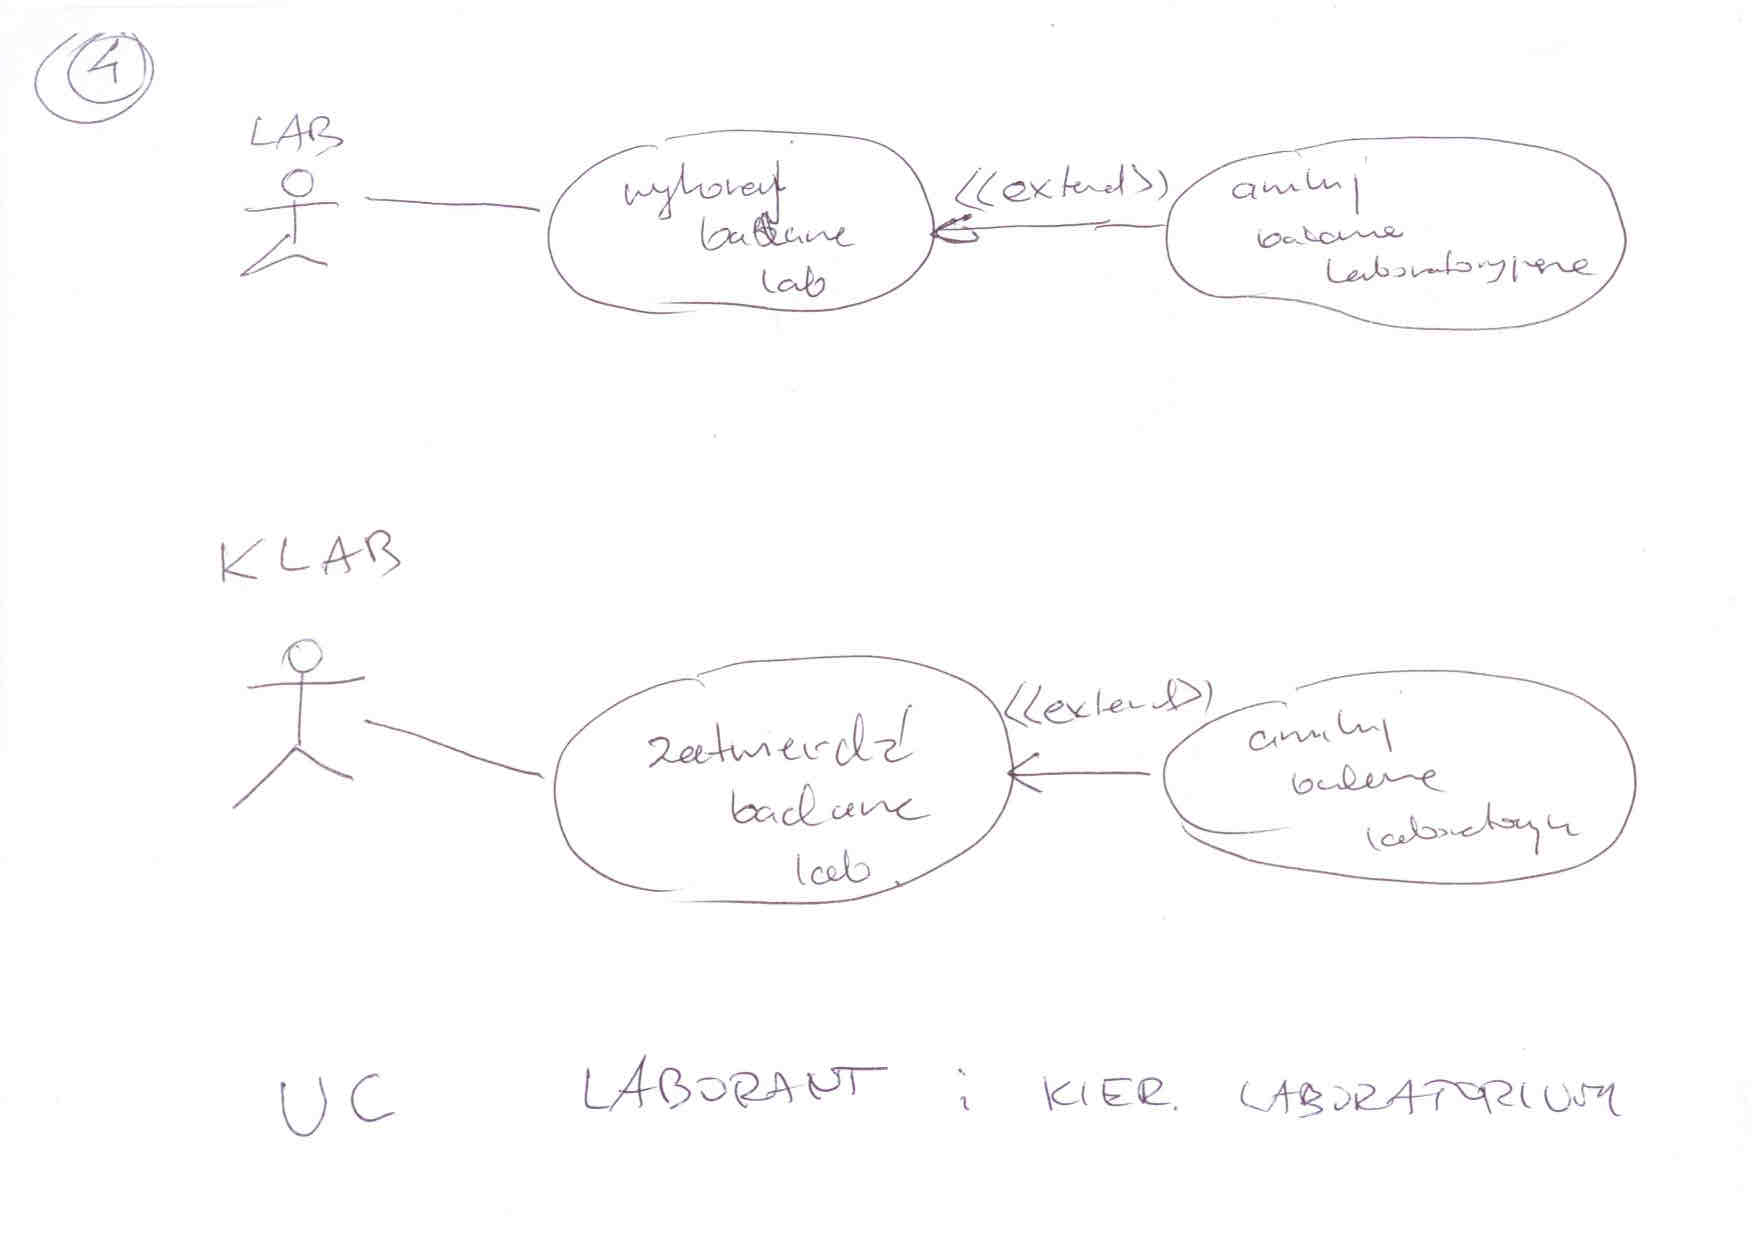 4
LAB
wykonaj
badanie
lab
<<extend>>
anuluj
badanie
laboratoryjne
KLAB
zatwierdź
badanie
lab.
<<extend>>
anuluj
badanie
laboratoryjn
UC LABORANT i KIER. LABORATORIUM